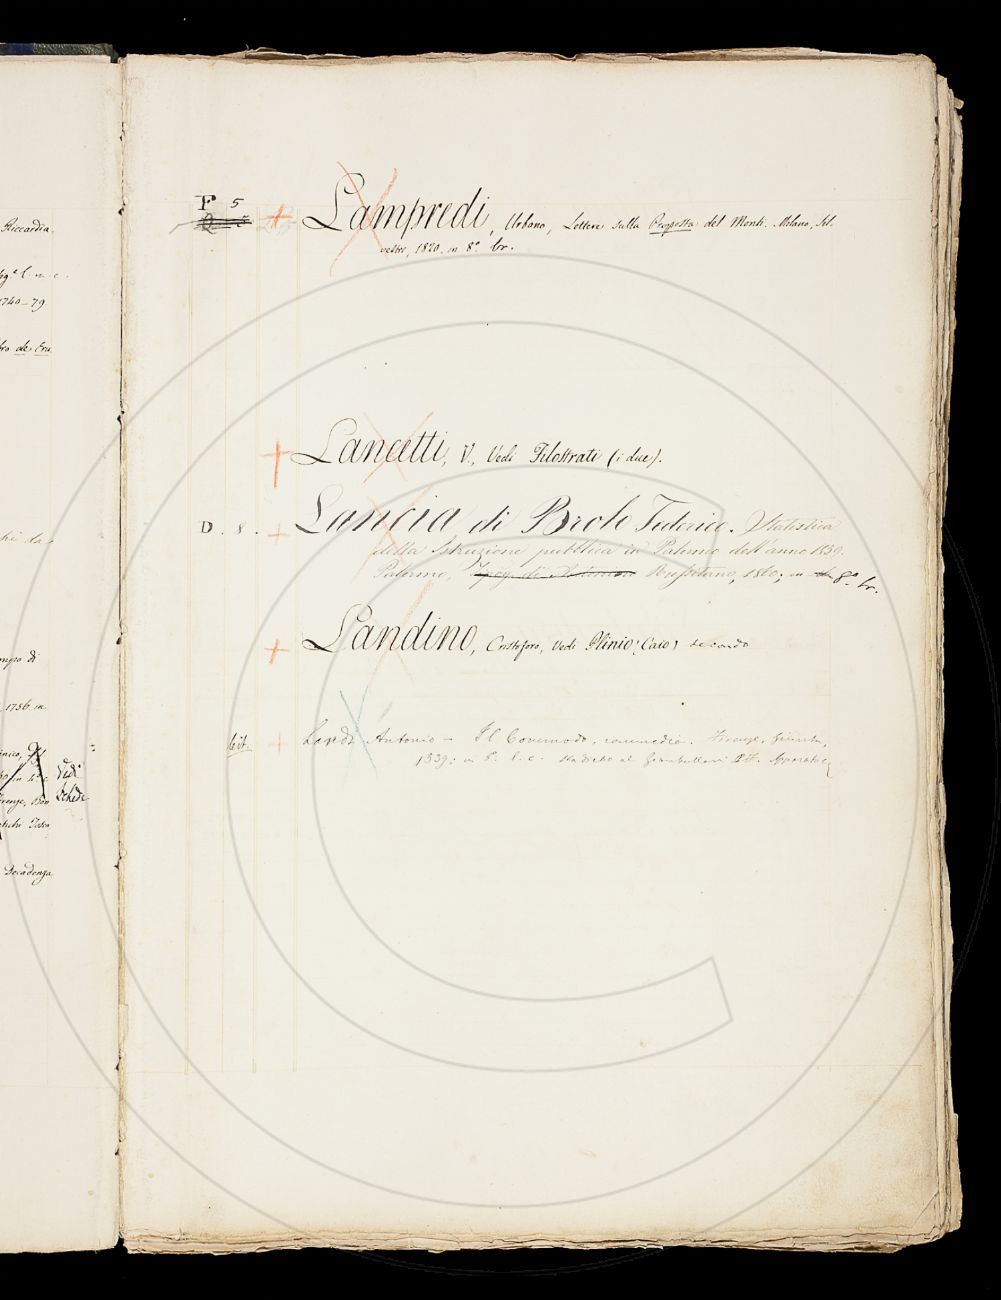 Riccardia
1740-79
de Era
1756 in
Vedi
Schede
Decadenza
F 5
Lampredi, Urbano, Lettere sulla Proposta del Monti. Milano, Sil-
vestri, 1820. in 8.º br.
Lancetti, V., Vedi Filostrati (i due).
D. 8. Lancia di Brolo Federico. Statistica
della Istruzione pubblica in Palermo dell'anno 1859.
Palermo, 1860, in 8.º br.
Landino, Cristoforo, Vedi Plinio (Caio) secondo
Landi Antonio - Il Commodo, commedia. Firenze, Giunta,
1539; in 8. l. c.